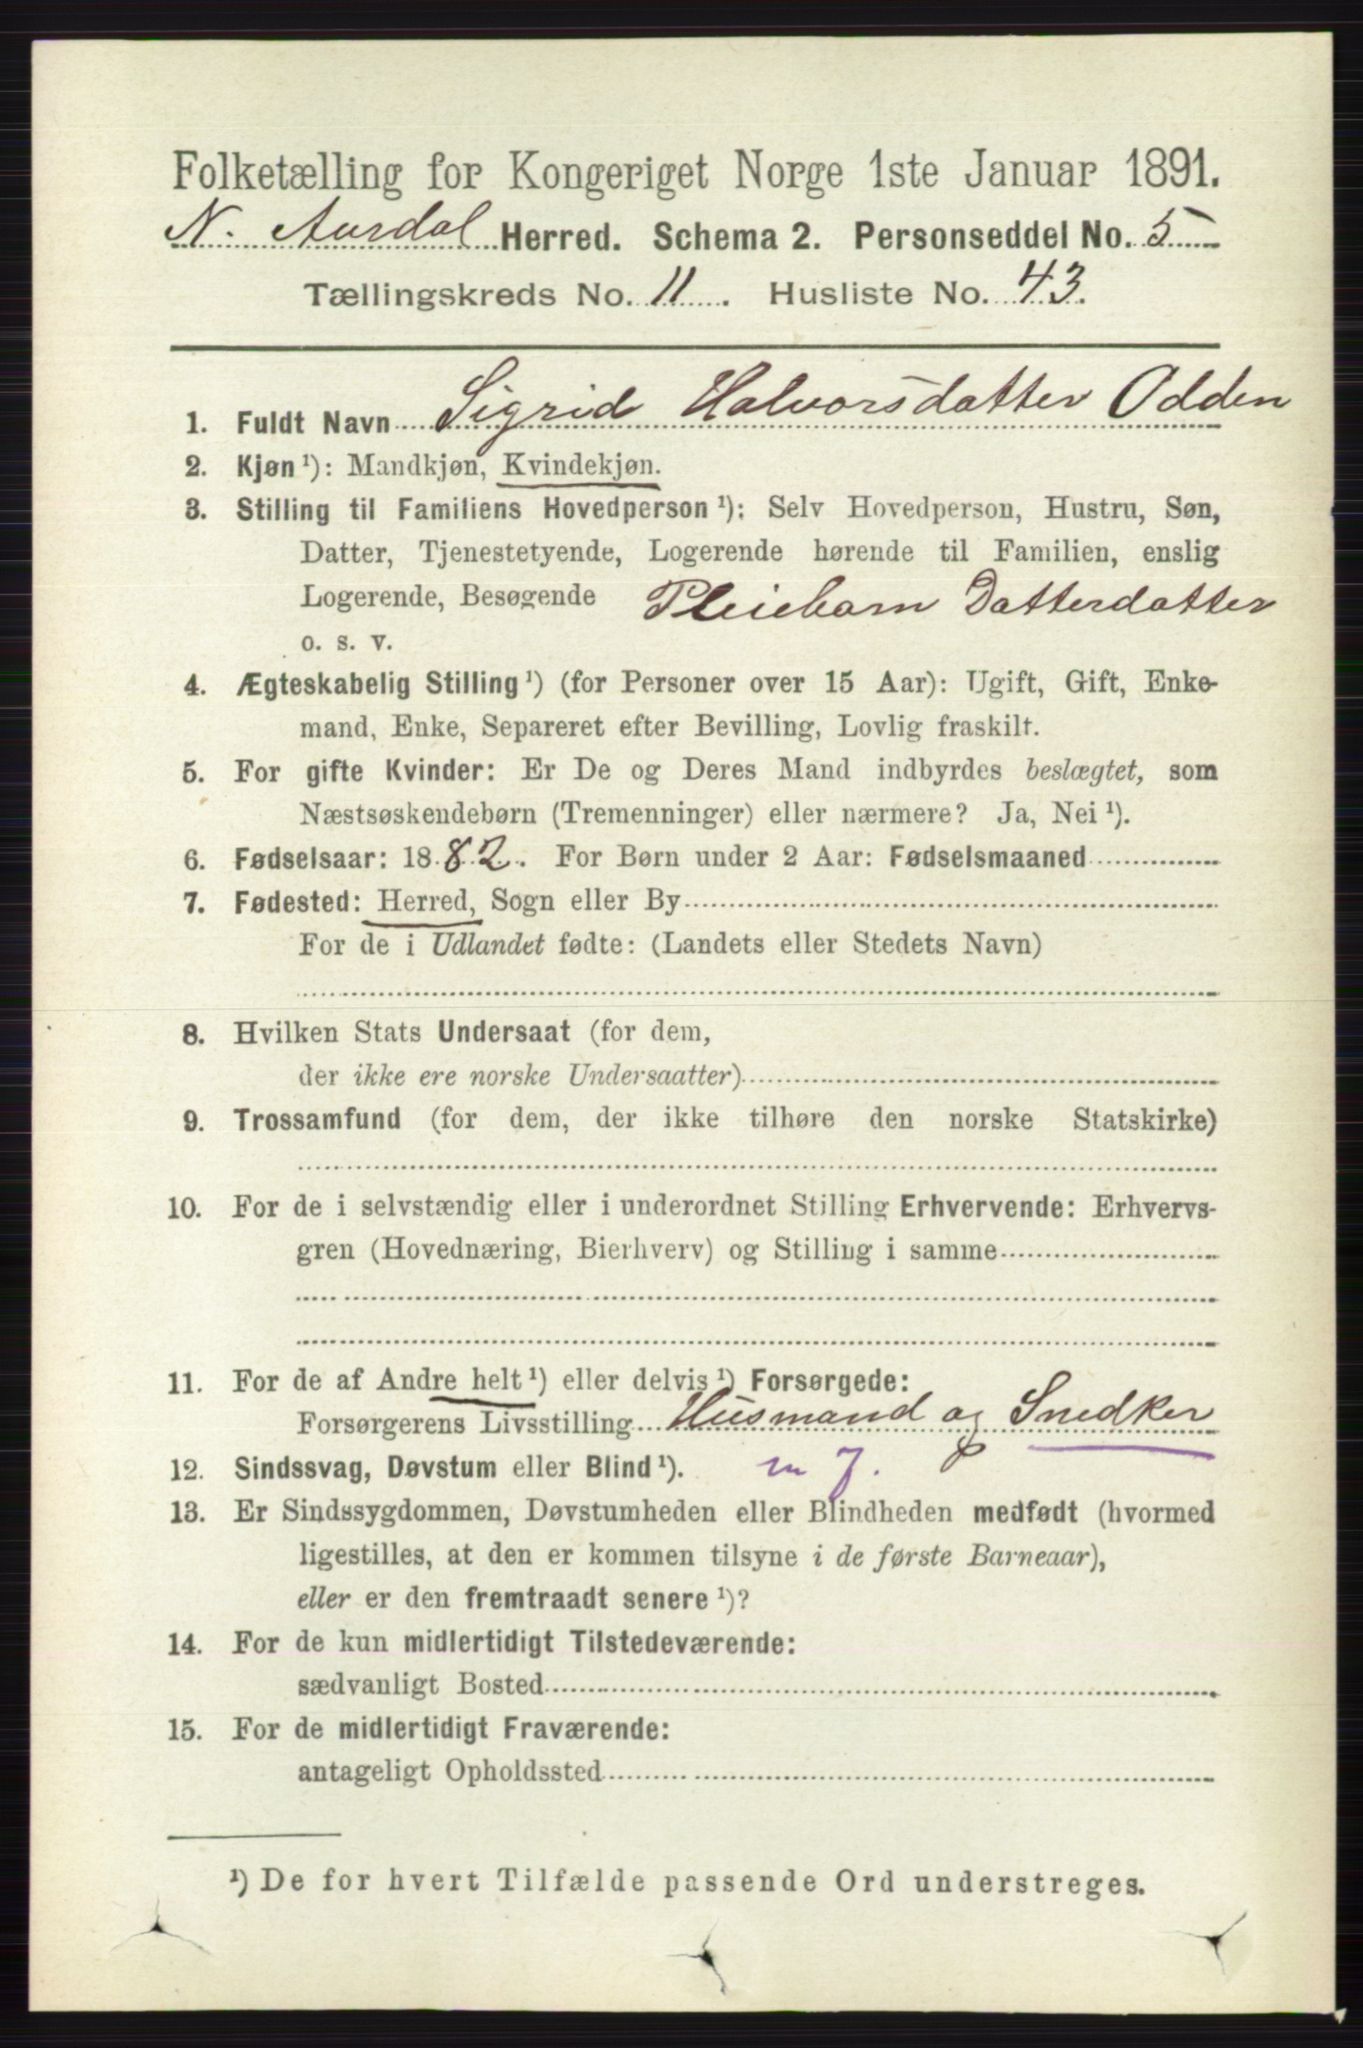 Folketælling for Kongeriget Norge 1ste Januar 1891.
N. Aurdal Herred. Schema 2. Personseddel No. 5
Tællingskreds No. 11. Husliste No. 43.
1. Fuldt Navn Sigrid Halvorsdatter Odden
2. Kjøn¹): Mandkjøn, Kvindekjøn.
3. Stilling til Familiens Hovedperson¹): Selv Hovedperson, Hustru, Søn,
Datter, Tjenestetyende, Logerende hørende til Familien, enslig
Logerende, Besøgende Pleiebarn Datterdatter
o. s. v.
4. Ægteskabelig Stilling¹) (for Personer over 15 Aar): Ugift, Gift, Enke-
mand, Enke, Separeret efter Bevilling, Lovlig fraskilt.
5. For gifte Kvinder: Er De og Deres Mand indbyrdes beslægtet, som
Næstsøskendebørn (Tremenninger) eller nærmere? Ja, Nei¹).
6. Fødselsaar: 1882. For Børn under 2 Aar: Fødselsmaaned
7. Fødested: Herred, Sogn eller By
For de i Udlandet fødte: (Landets eller Stedets Navn)
8. Hvilken Stats Undersaat (for dem,
der ikke ere norske Undersaatter)
9. Trossamfund (for dem, der ikke tilhøre den norske Statskirke)
10. For de i selvstændig eller i underordnet Stilling Erhvervende: Erhvervs-
gren (Hovednæring, Bierhverv) og Stilling i samme
11. For de af Andre helt¹) eller delvis¹) Forsørgede:
Forsørgerens Livsstilling Husmand og Snedker
12. Sindssvag, Døvstum eller Blind¹). m J.
13. Er Sindssygdommen, Døvstumheden eller Blindheden medfødt (hvormed
ligestilles, at den er kommen tilsyne i de første Barneaar),
eller er den fremtraadt senere¹)?
14. For de kun midlertidigt Tilstedeværende:
sædvanligt Bosted
15. For de midlertidigt Fraværende:
antageligt Opholdssted
¹) De for hvert Tilfælde passende Ord understreges.